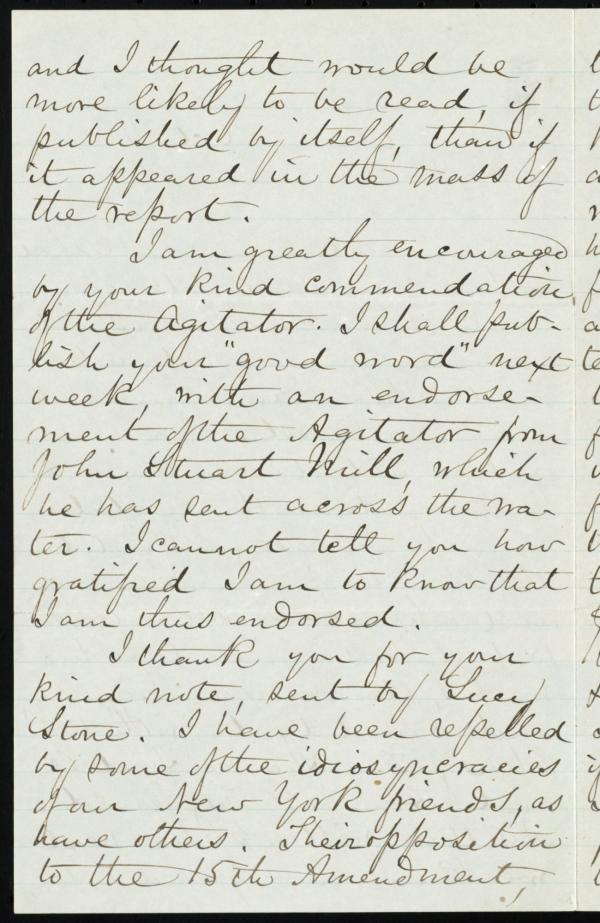 and I thought would be
more likely to be read, if
published by itself, than if
it appeared in the mass of
the report.
I am greatly encouraged
by your kind commendation
of the Agitator. I shall pub-
lish your "good word" next
week, with an endorse-
ment of the Agitator from
John Stuart Mill, which
he has sent across the wa-
ter. I cannot tell you how
gratified I am to know that
I am thus endorsed.
I thank you for your
kind note, sent by Lucy
Stone. I have been repelled
by some of the idiosyncracies
of our New York friends, as
have others. Their opposition
to the 15th Amendment,